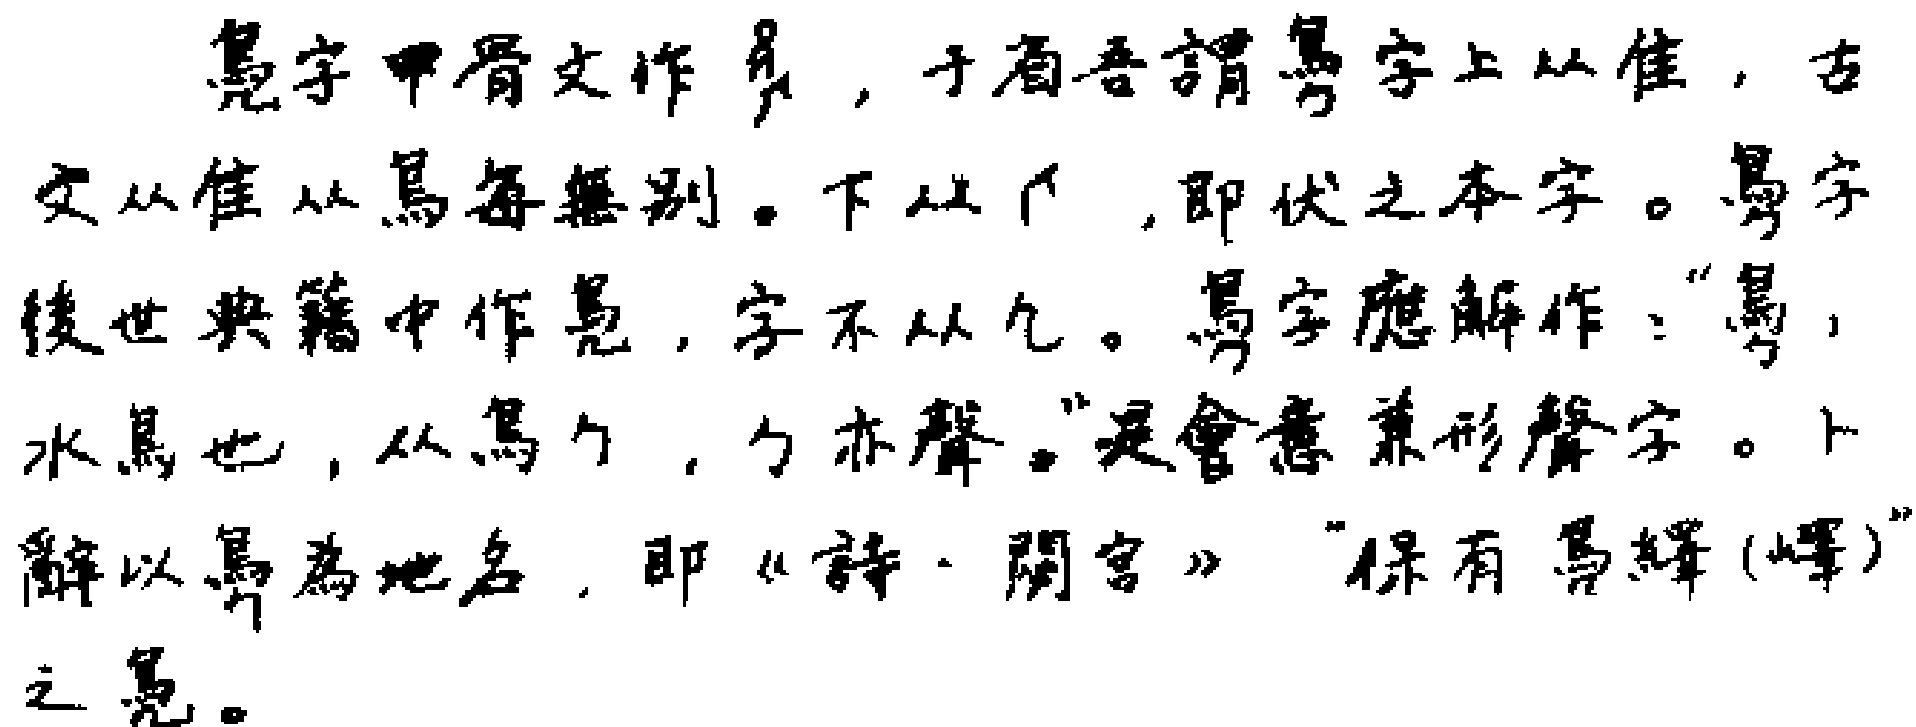 鳧字甲骨文作,于省吾謂鳧字上从隹,古
文从隹从鳥每無別。下从,即伏之本字。鳧字
後世典籍中作鳧,字不从几。鳧字應解作:“鳧,
水鳥也,从鳥勹,勹亦聲。”是會意兼形聲字。卜
辭以鳧為地名,即《詩·閟宮》“保有鳧繹(嶧)”
之鳧。